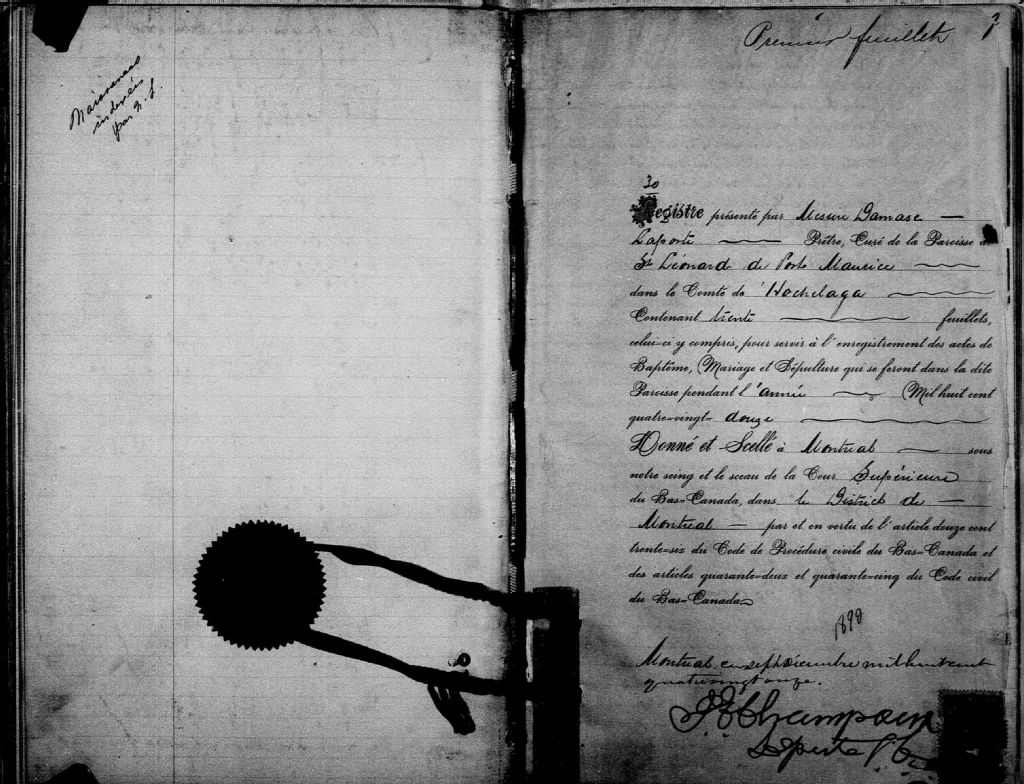 Naissances
indexées
par
Premier feuillet
30
Registre présenté par Messire Damase
Laporte Prêtre, Curé de la Paroisse de
St Léonard de Port Maurice
dans le Comté de Hochelaga
Contenant trente feuillets,
celui-ci y compris, pour servir à l'enregistrement des actes de
Baptême, Mariage et Sépulture qui se feront dans la dite
Paroisse pendant l'année Mil huit cent
quatre-vingt-douze
Donné et Scellé à Montreal sous
notre seing et le sceau de la Cour Supérieure
du Bas-Canada, dans le District de
Montreal par et en vertu de l'article douze cent
trente-six du Code de Procédure civile du Bas-Canada et
des articles quarante-deux et quarante-cinq du Code civil
du Bas-Canada
Montreal ce sept décembre mil huit cent
quatrevingt onze.
Champoux
Deputé